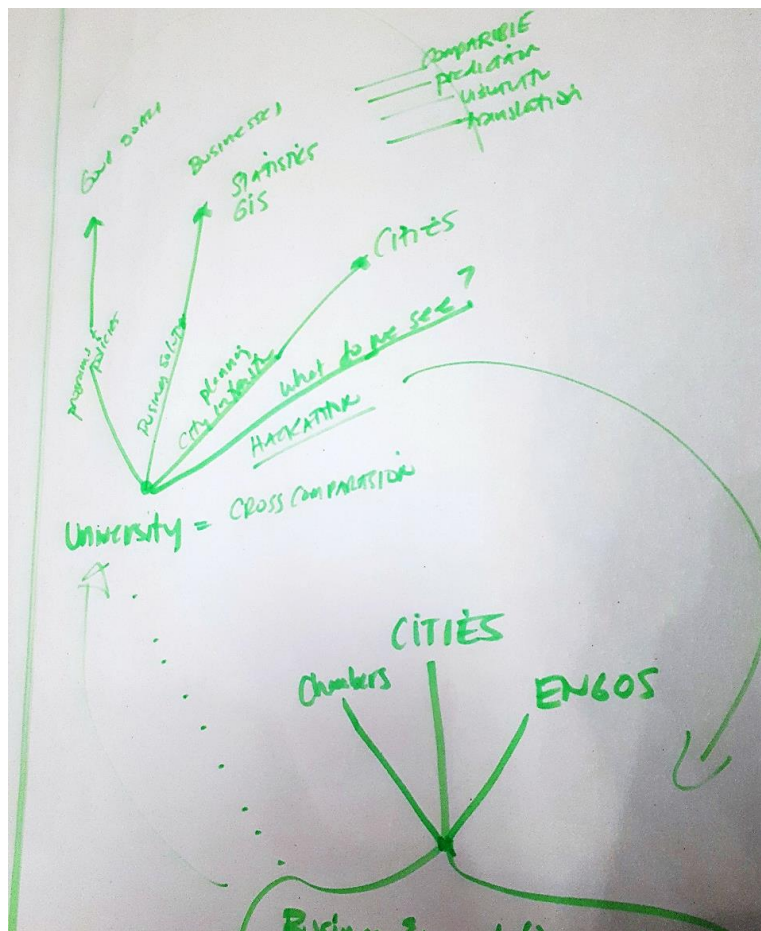 COMPARIBLE
prediction
translation
BUSINESSES
STATISTICS
GIS
CITIES
programs +
policies
Business solution
planning
City
what do we see?
HACKATHON
University = CROSS COMPARASION
CITIES
Chambers
ENGOS